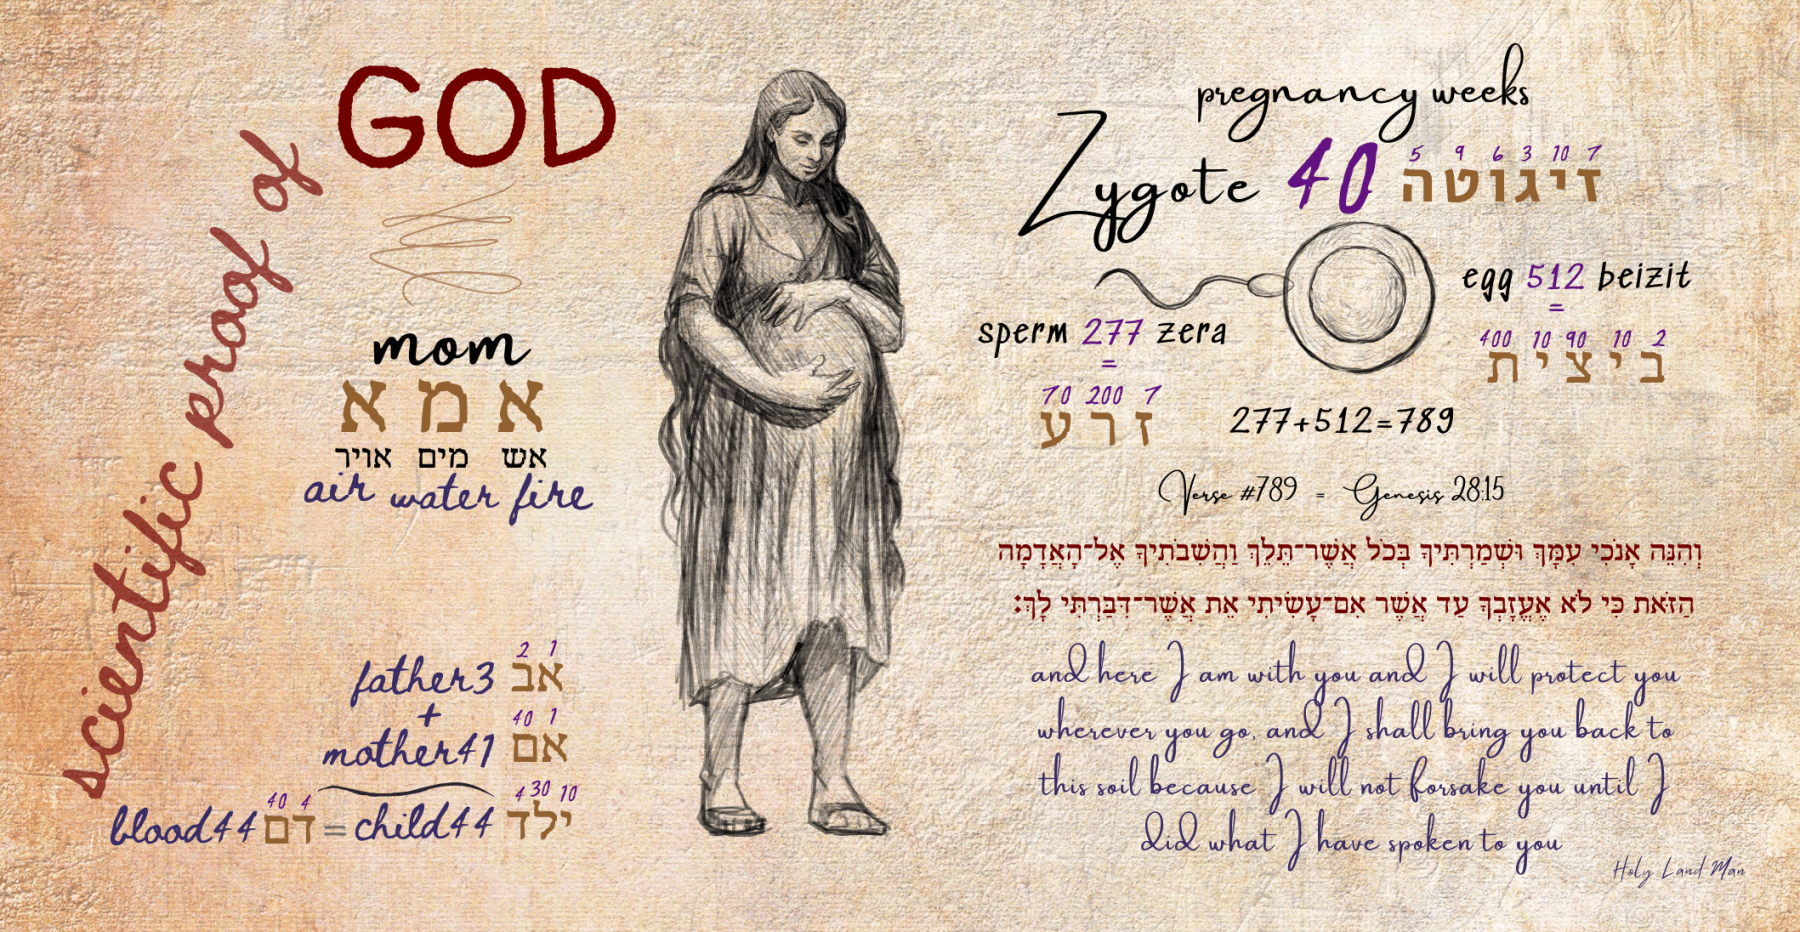 scientific proof of
GOD
mom
אמא
אש מים אויר
air water fire
2 1
father3 אב
+
40 1
mother41 אם
4 30 10
40 4
blood44 דם = child44 ילד
pregnancy weeks
5 9 6 3 10 7
Zygote 40 זיגוטה
egg 512 beizit
=
400 10 90 10 2
ביצית
sperm 277 zera
=
70 200 7
זרע
277+512=789
Verse #789 = Genesis 28:15
וְהִנֵּה אָנֹכִי עִמָּךְ וּשְׁמַרְתִּיךָ בְּכֹל אֲשֶׁר־תֵּלֵךְ וַהֲשִׁבֹתִיךָ אֶל־הָאֲדָמָה
הַזֹּאת כִּי לֹא אֶעֱזָבְךָ עַד אֲשֶׁר אִם־עָשִׂיתִי אֵת אֲשֶׁר־דִּבַּרְתִּי לָךְ׃
and here I am with you and I will protect you
wherever you go, and I shall bring you back to
this soil because I will not forsake you until I
did what I have spoken to you
Holy Land Man